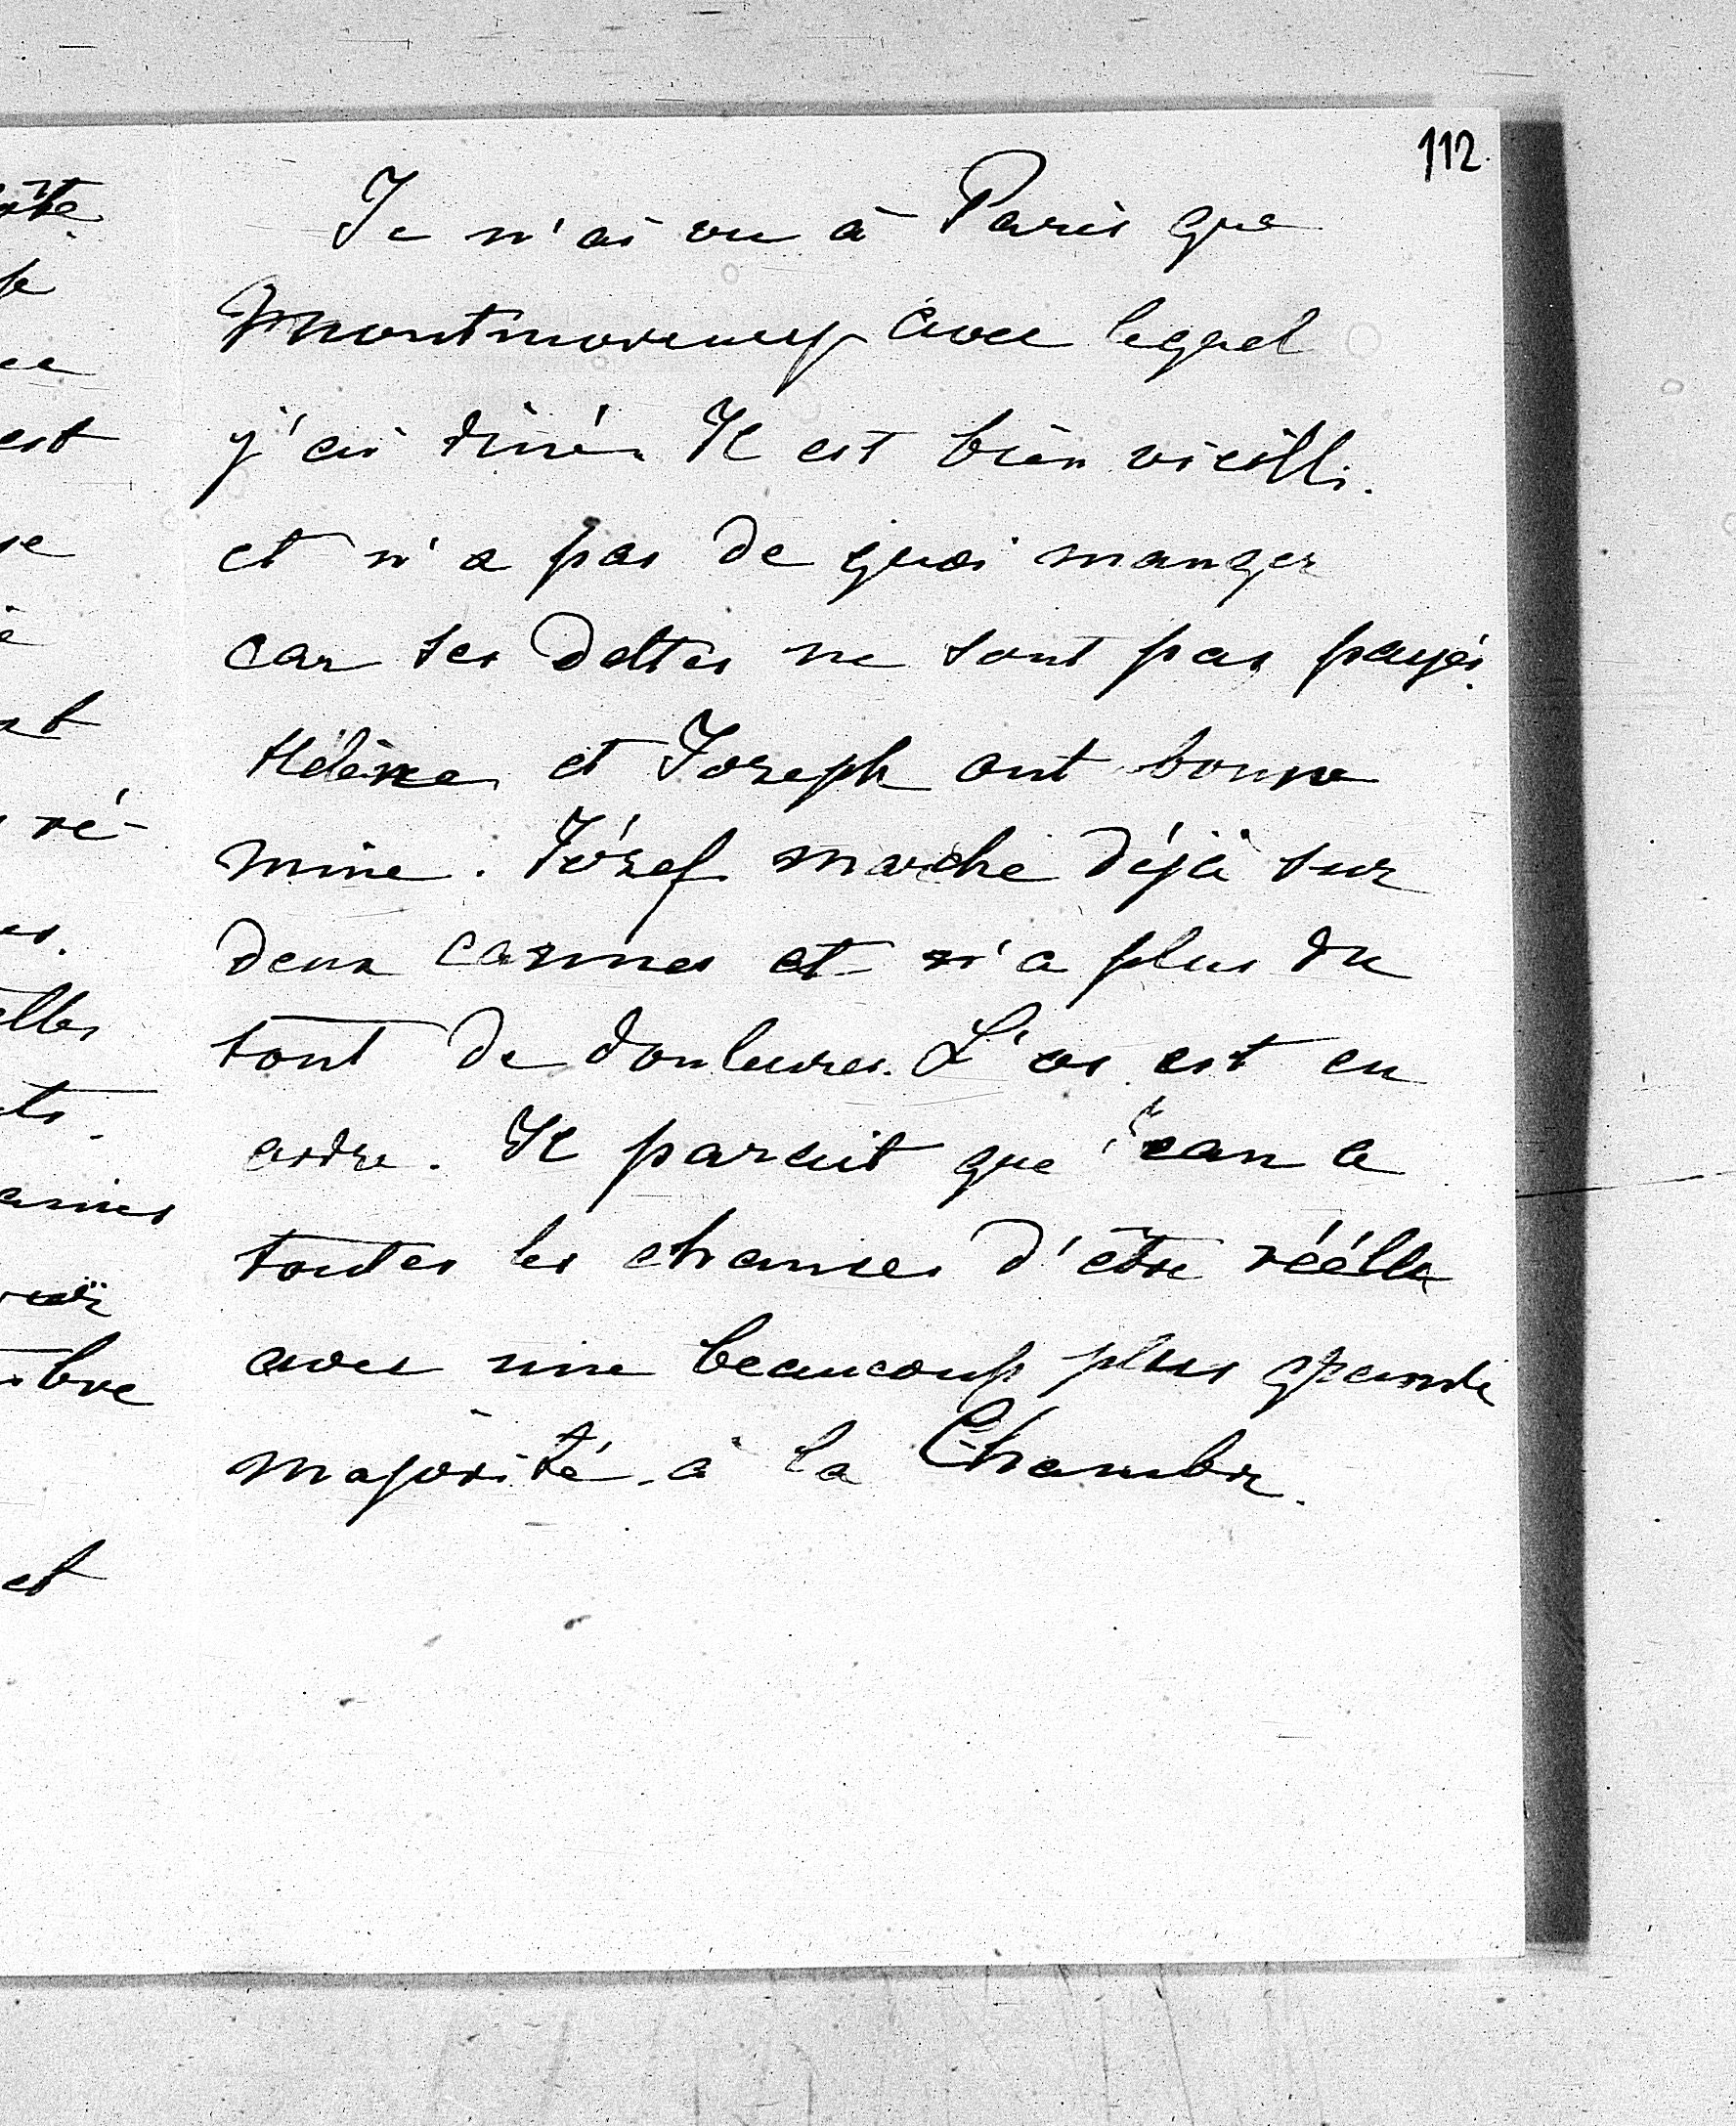 112.
Je n'ai vu à Paris que
Montmorency avec lequel
j'ai diné. Il est bien vieilli.
et n'a pas de quoi manger
car ses dettes ne sont pas payés.
Hélène et Joseph ont bonne
mine. Józef marche déjà sur
deux cannes et n'a plus du
tout de douleures. L'os est en
ordre. Il parait que Jean a
toutes les chances d'être réélu
avec une beaucoup plus grande
majorité à la Chambre.
ôte
se
est
re
ré-
elles
ts.
bre
et